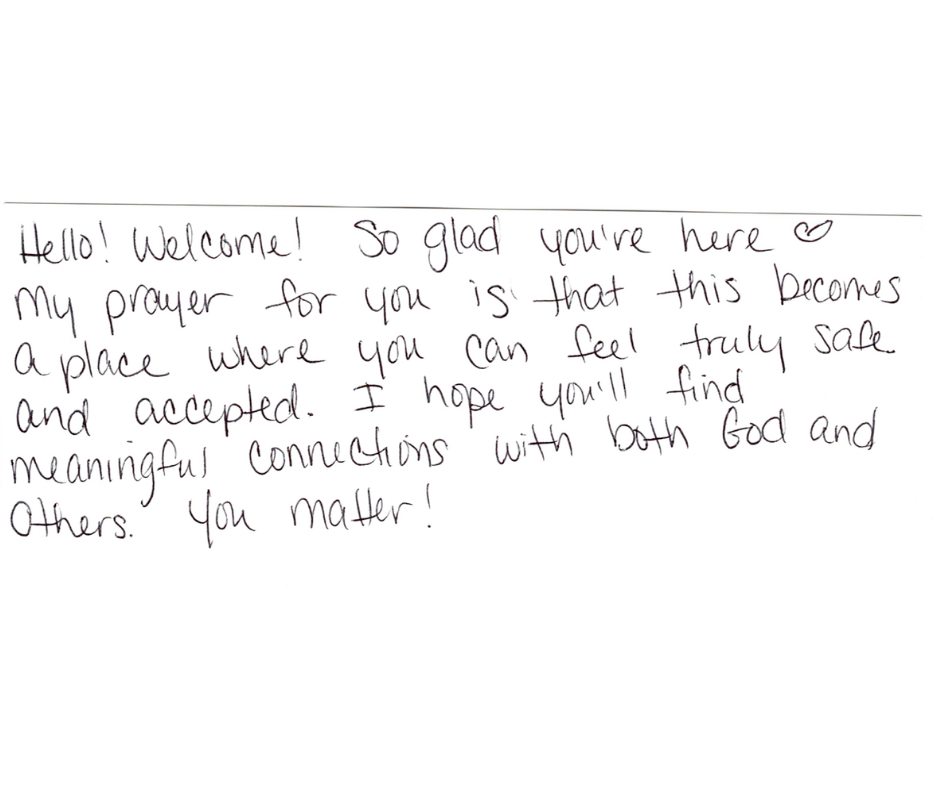 Hello! Welcome! So glad you're here ♡
My prayer for you is that this becomes
a place where you can feel truly safe
and accepted. I hope you'll find
meaningful connections with both God and
others. You matter!